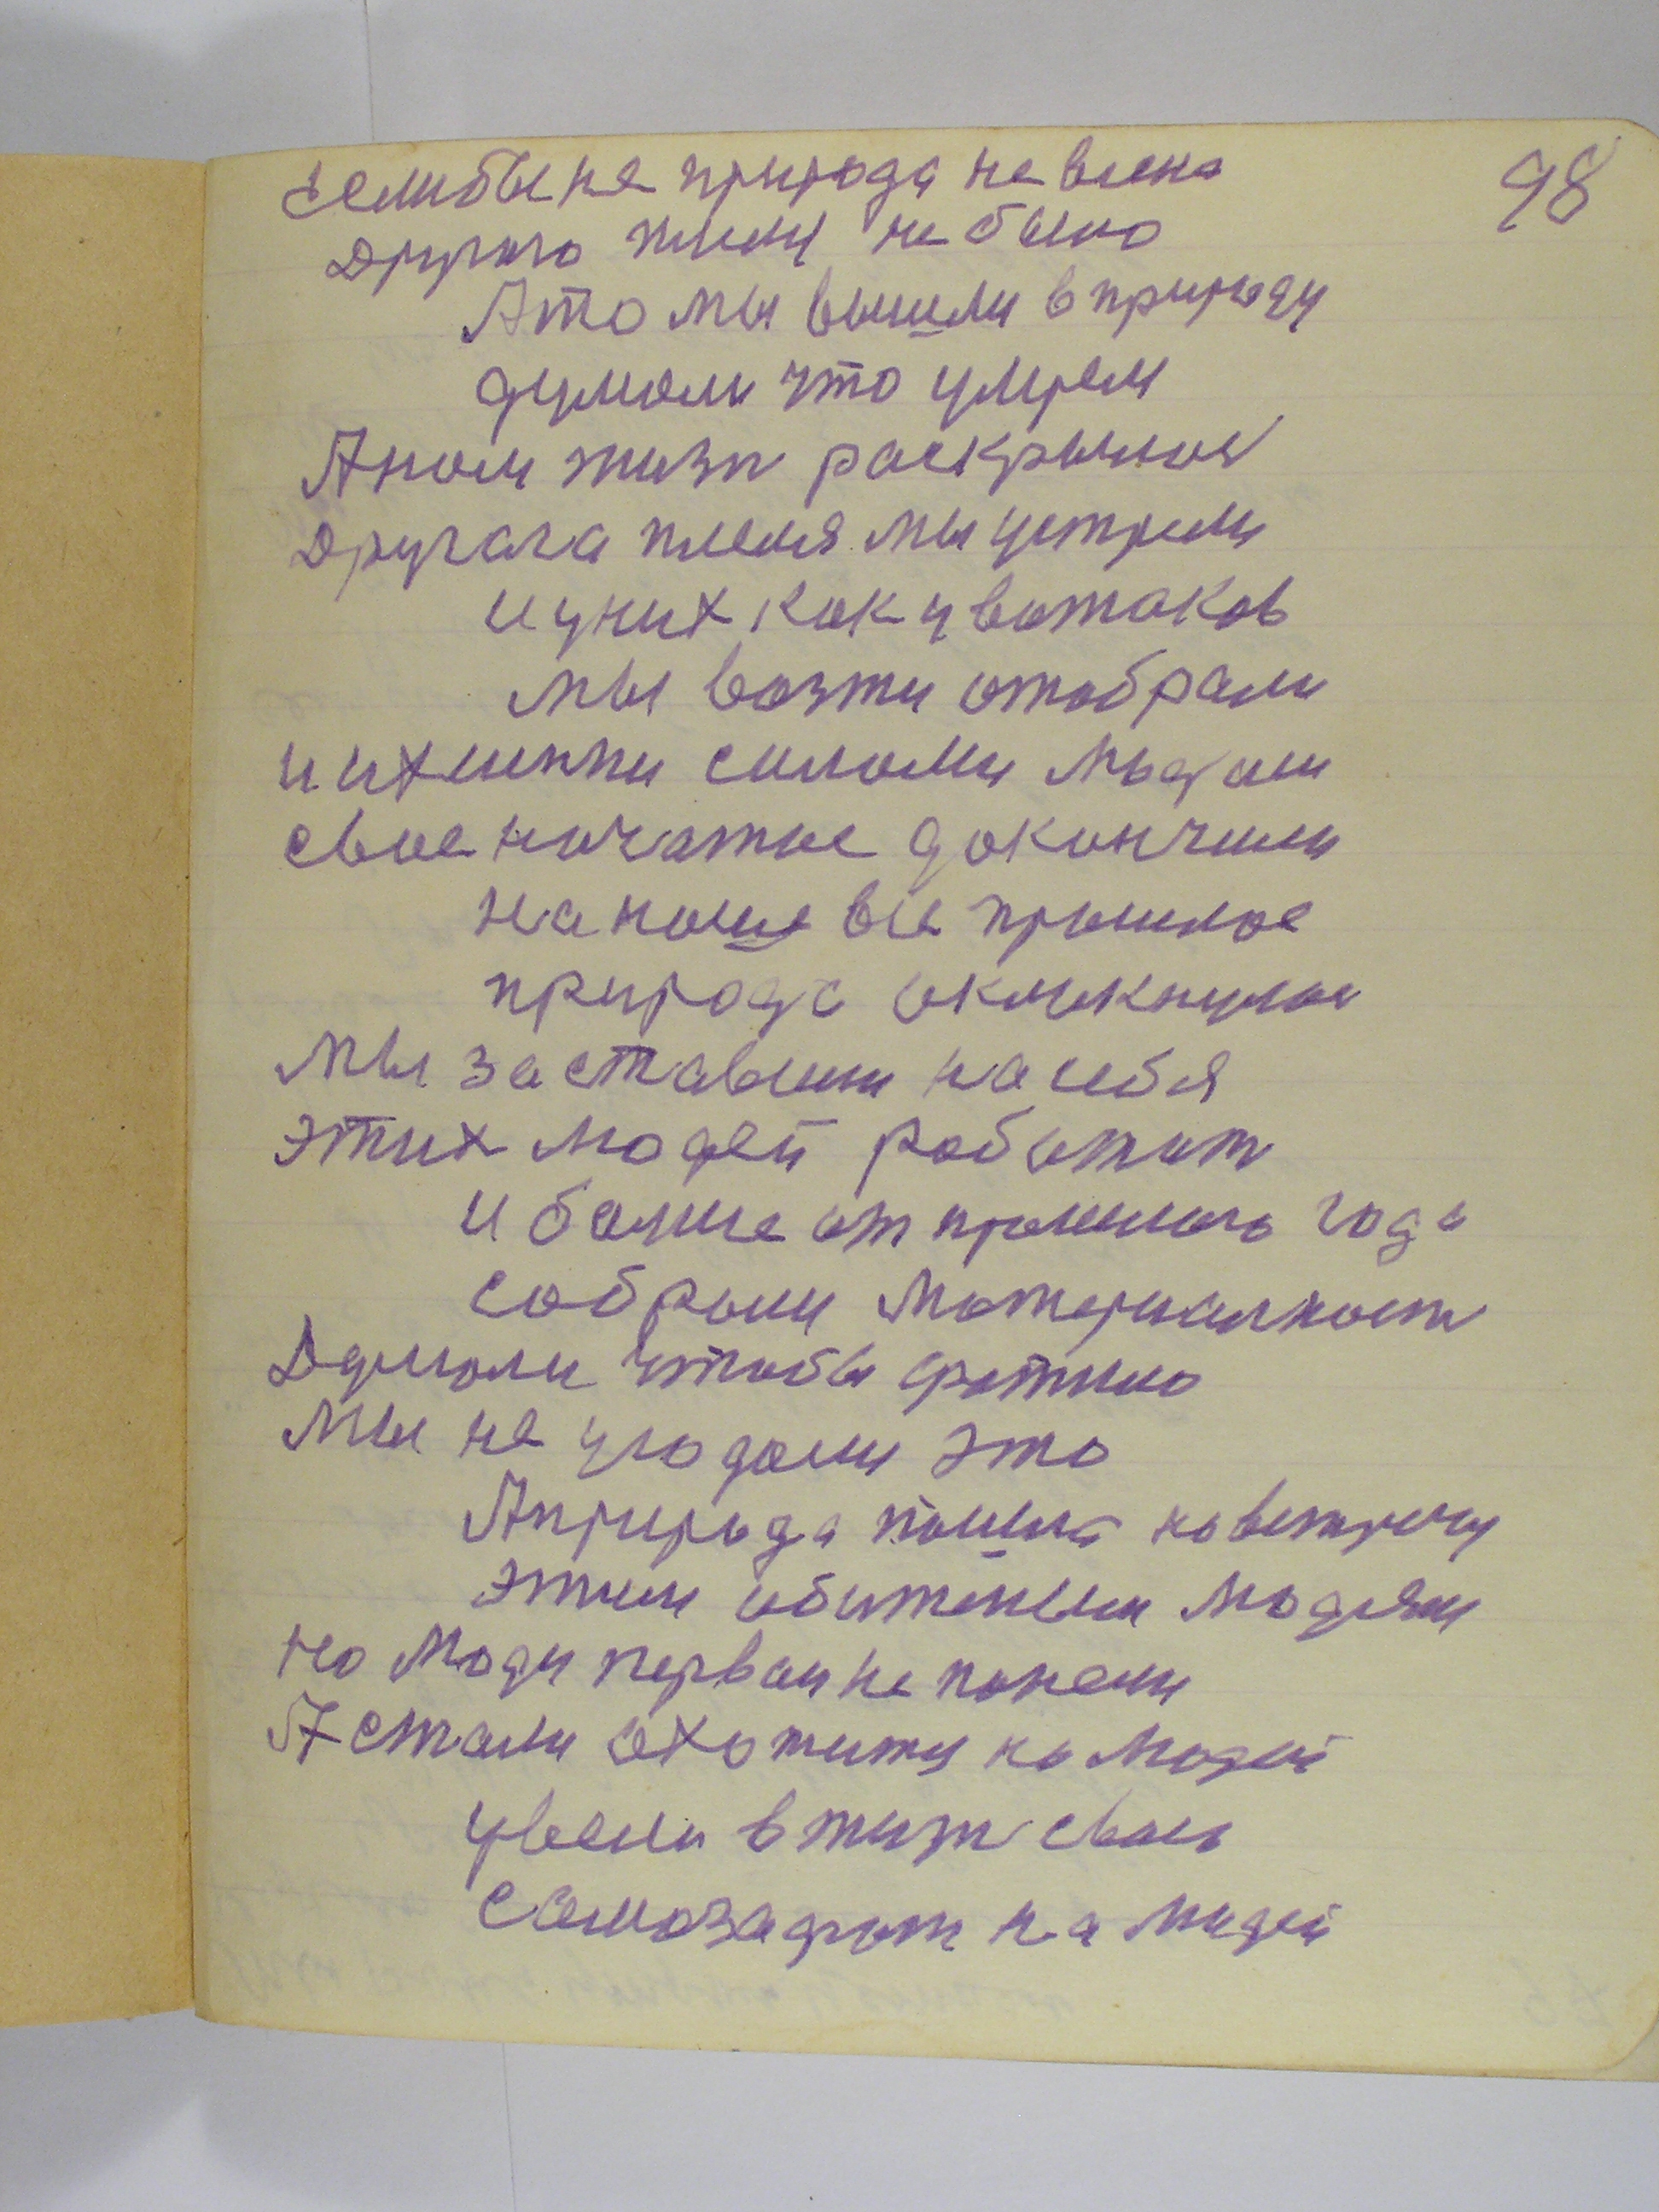 98
Если бы не природа не весна
Другого племя не было
А то мы вышли в природу
думали что умрем
А нам жизн раскрылась
Другога племя мы устрели
и у них как у ватаков
мы вожжи отобрали
и ихнимы силами людями
свое начатое докончили
На наше все прошлое
природа окликнулас
Мы заставили на себя
этих людей работат
и болше от прошлого года
собрали материалност
Думали чтобы
мы не угодали это
А природа пошла на встречу
этим обиженым людям
Но люди перваи не поняли
А стали охотится на людей
увели в жизн свою
самозащит на людей